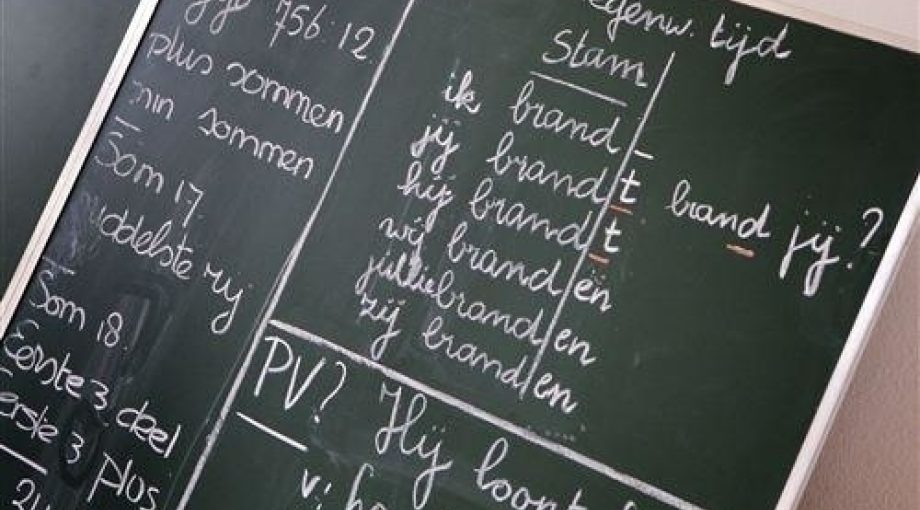 756:12
plus sommen
min sommen
Som 17.
middelste rij
Som 18.
Eerste 3 deel
Eerste 3 plus
tegenw. tijd
Stam
ik brand -
jij brand t brand jij?
hij brand t
wij brand en
jullie brand en
zij brand en
PV? Hij loopt